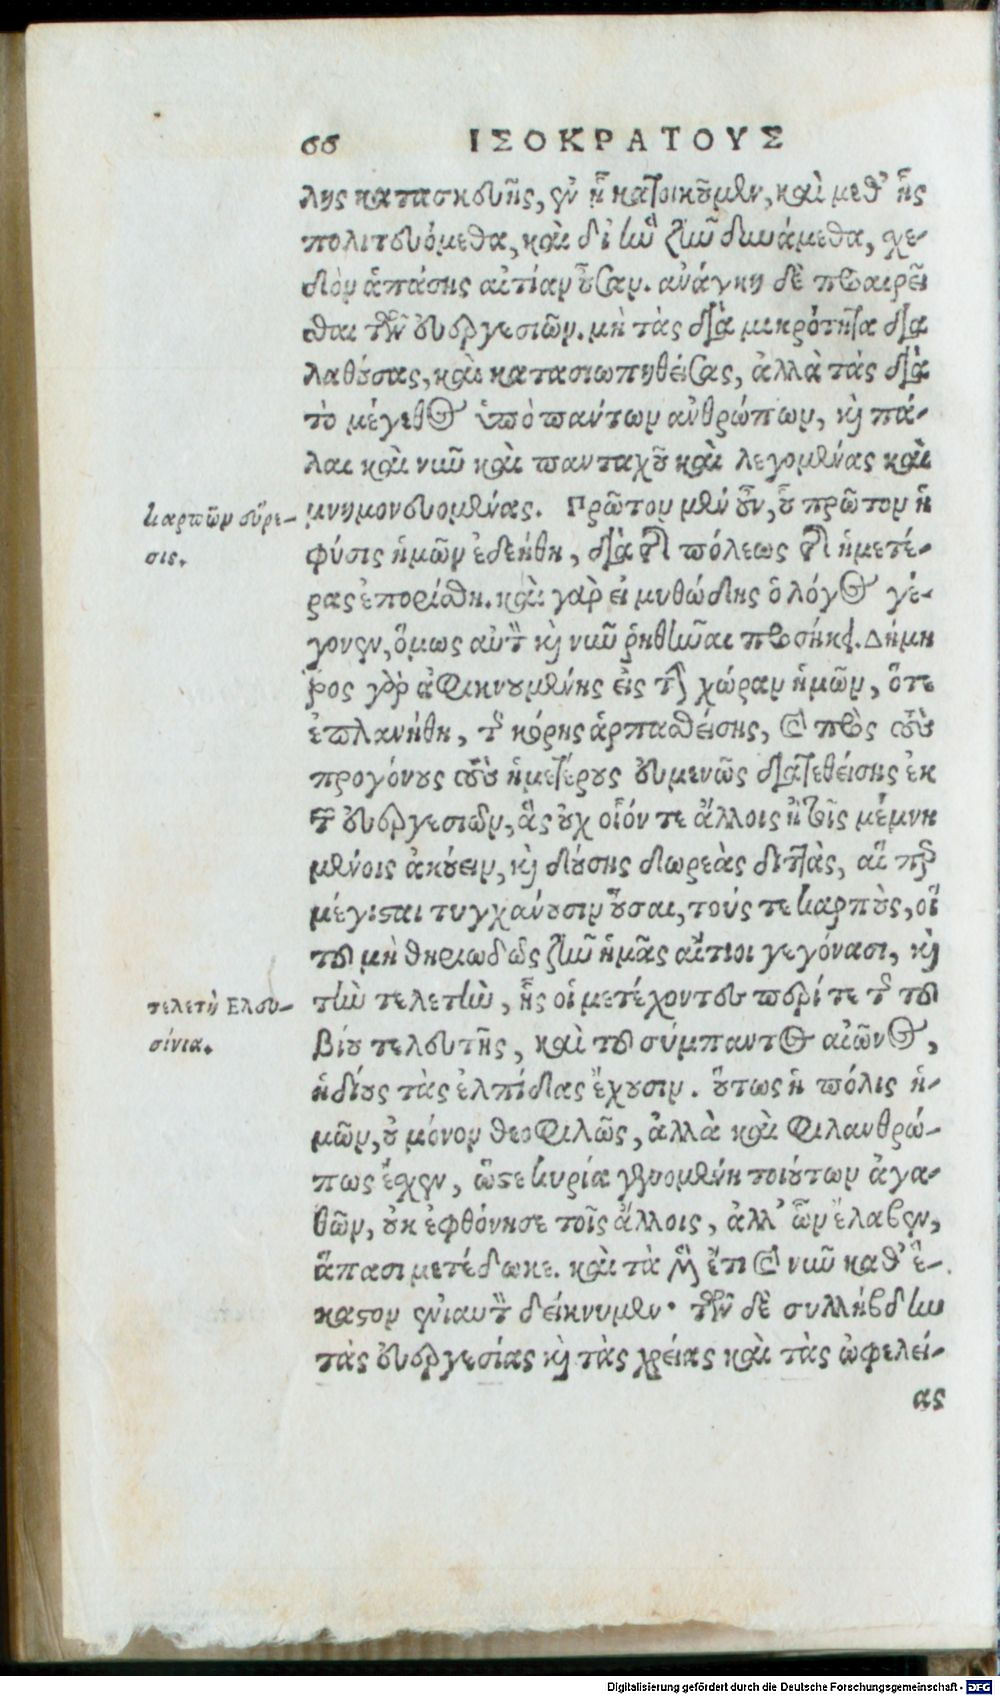 66 ΙΣΟΚΡΑΤΟΥΣ
λης κατασκευῆς, ἐν ᾗ κατοικοῦμεν, καὶ μεθ' ἧς
πολιτευόμεθα, καὶ δι' ἣν ζῆν δυνάμεθα, σχε-
δὸν ἁπάσης αἰτίαν οὖσαν. ἀνάγκη δὲ προαιρεῖ
σθαι τῶν εὐεργεσιῶν. μὴ τὰς διὰ μικρότητα δια
λαθούσας, καὶ κατασιωπηθείσας, ἀλλὰ τὰς διὰ
τὸ μέγεθος ὑπὸ πάντων ἀνθρώπων, καὶ πά-
λαι καὶ νῦν καὶ πανταχοῦ καὶ λεγομένας καὶ
καρπῶν εὕρε-
σις.
μνημονευομένας. Πρῶτον μὲν οὖν, οὗ πρῶτον ἡ
φύσις ἡμῶν ἐδεήθη, διὰ τῆς πόλεως τῆς ἡμετέ-
ρας ἐπορίσθη. καὶ γὰρ εἰ μυθώδης ὁ λόγος γέ-
γονεν, ὅμως αὐτῷ καὶ νῦν ῥηθῆναι προσήκει. Δήμη
τρος γὰρ ἀφικνουμένης εἰς τὴν χώραν ἡμῶν, ὅτε
ἐπλανήθη, τῆς κόρης ἁρπασθείσης, καὶ πρὸς τοὺς
προγόνους τοὺς ἡμετέρους εὐμενῶς διατεθείσης ἐκ
τῶν εὐεργεσιῶν, ἃς οὐχ οἷόν τε ἄλλοις ἢ τοῖς μεμνη
μένοις ἀκούειν, καὶ δούσης δωρεὰς διττὰς, αἵ περ
μέγισται τυγχάνουσιν οὖσαι, τούς τε καρποὺς, οἳ
τοῦ μὴ θηριωδῶς ζῆν ἡμᾶς αἴτιοι γεγόνασι, καὶ
τελετὴ Ελευ-
σίνια.
τὴν τελετὴν, ἧς οἱ μετέχοντες περί τε τῆς τοῦ
βίου τελευτῆς, καὶ τοῦ σύμπαντος αἰῶνος,
ἡδίους τὰς ἐλπίδας ἔχουσιν. οὕτως ἡ πόλις ἡ-
μῶν, οὐ μόνον θεοφιλῶς, ἀλλὰ καὶ φιλανθρώ-
πως ἔσχεν, ὥστε κυρία γενομένη τοιούτων ἀγα-
θῶν, οὐκ ἐφθόνησε τοῖς ἄλλοις, ἀλλ' ὧν ἔλαβεν,
ἅπασι μετέδωκε. καὶ τὰ μὲν ἔτι καὶ νῦν καθ' ἕ-
καστον ἐνιαυτὸν δείκνυμεν· τῶν δὲ συλλήβδην
τὰς εὐεργεσίας καὶ τὰς χρείας καὶ τὰς ὠφελεί-
ας
Digitalisierung gefördert durch die Deutsche Forschungsgemeinschaft - DFG